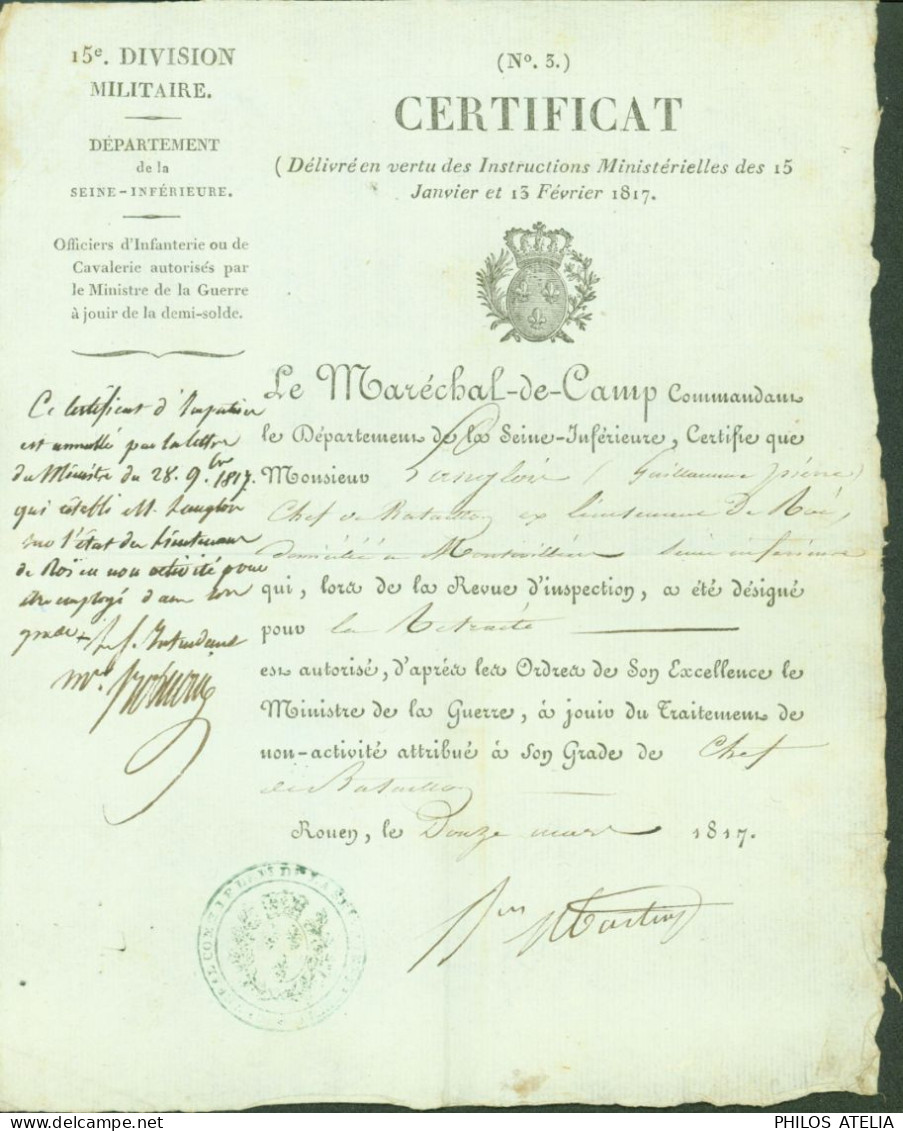 15e. DIVISION
MILITAIRE.
DÉPARTEMENT
de la
SEINE-INFÉRIEURE.
Officiers d'Infanterie ou de
Cavalerie autorisés par
le Ministre de la Guerre
à jouir de la demi-solde.
(No. 3.)
CERTIFICAT
(Délivré en vertu des Instructions Ministérielles des 15
Janvier et 13 Février 1817.
Le Maréchal-de-Camp Commandant
le Département de la Seine-Inférieure, Certifie que
Monsieur Langlois (Guillaume Pierre)
Chef de Bataillon ex lieutenant de Roi,
domicilié à Montivilliers Seine inférieure
qui, lors de la Revue d'inspection, a été désigné
pour la Retraite
est autorisé, d'après les Ordres de Son Excellence le
Ministre de la Guerre, à jouir du Traitement de
non-activité attribué à son Grade de Chef
de Bataillon
Rouen, le Douze mars 1817.
Ce Certificat d'
est annullé par la lettre
du Ministre du 28. 9.bre 1817.
qui établi M. Langlois
sur l'état des lieutenans
de Roi en non activité pour
être employé dans son
grade
Intendant
Martin
PHILOS ATELIA